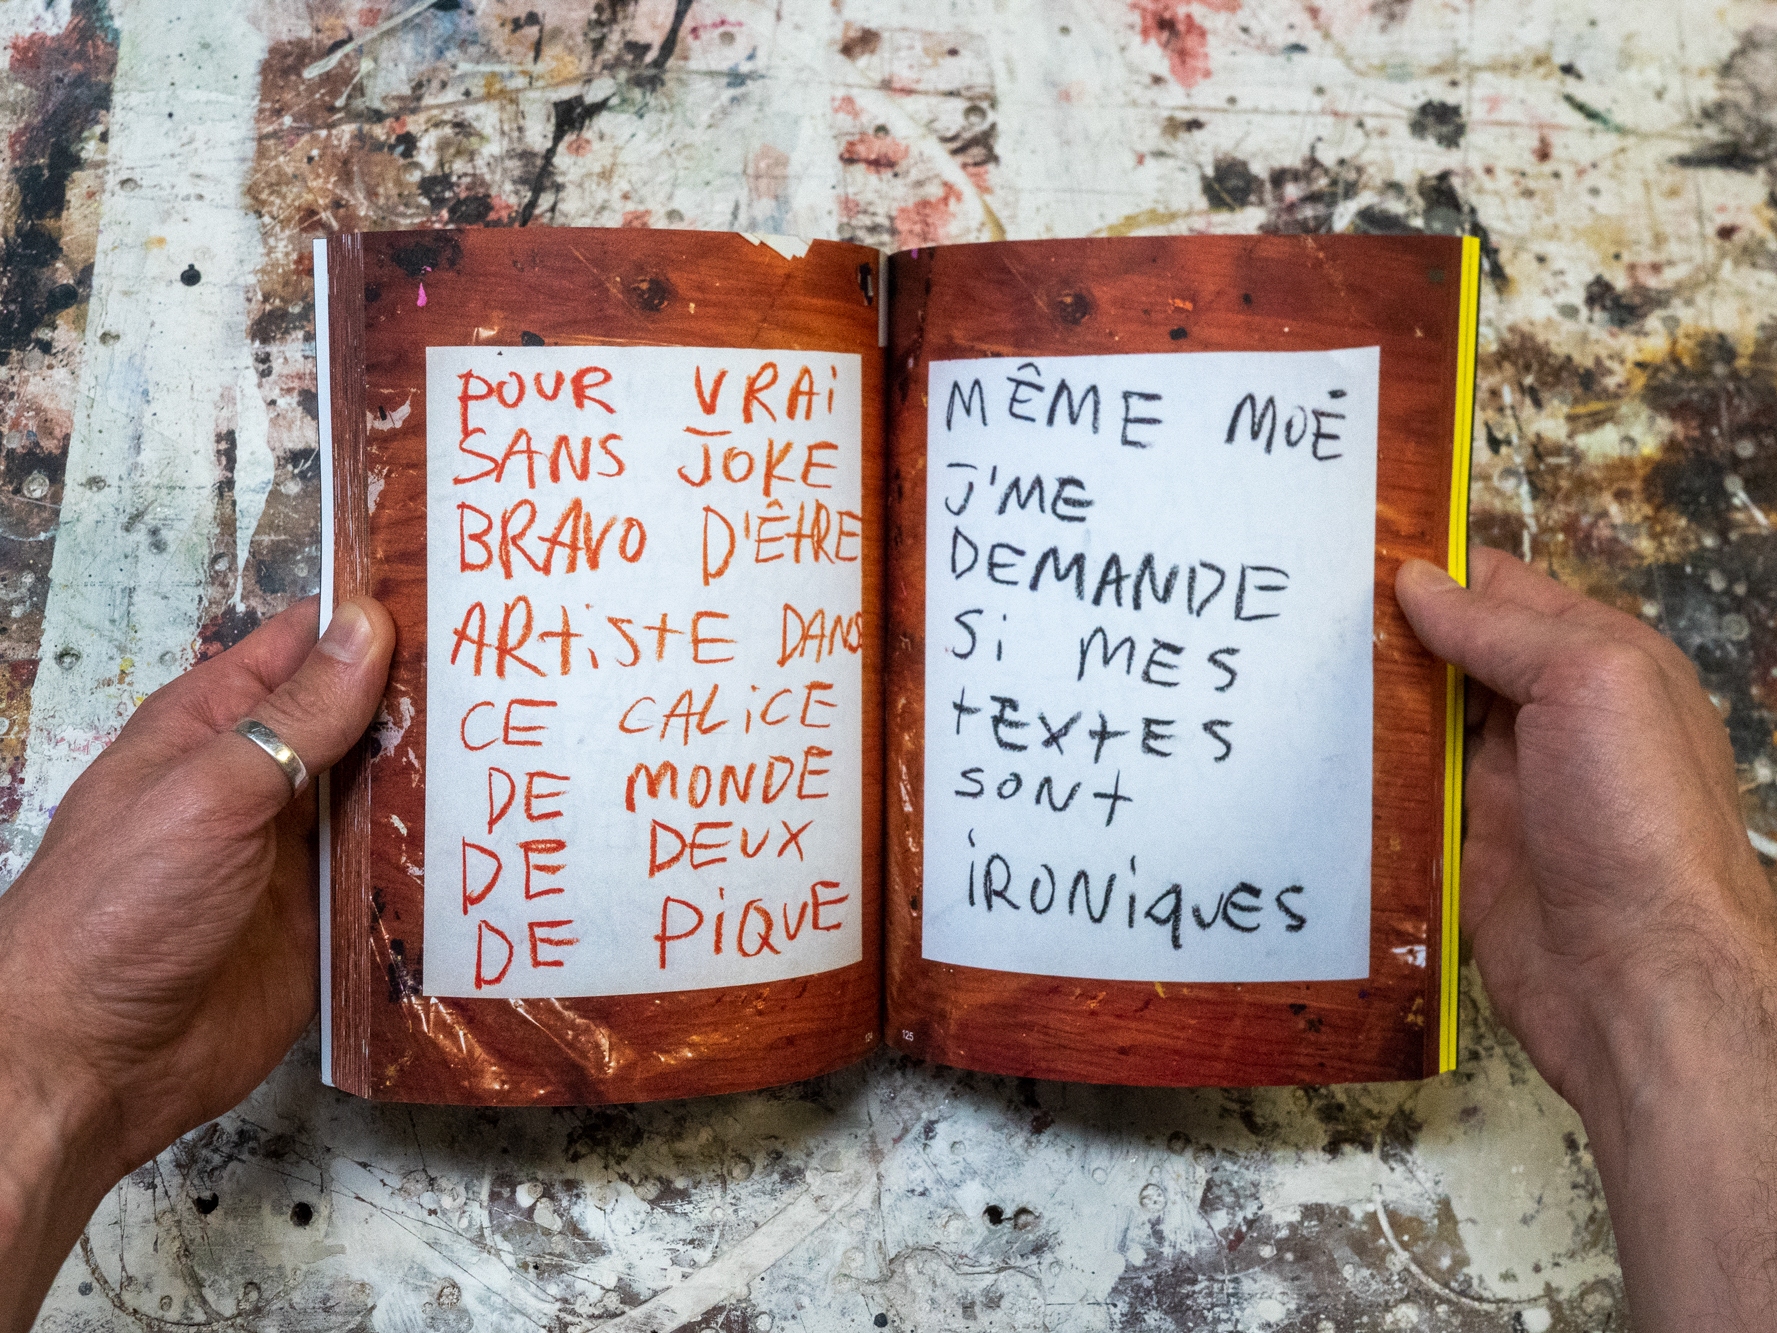 POUR VRAi
SANS JOKE
BRAVO D'ÊtRE
ARtiStE DANS
CE CALiCE
DE MONDE
DE DEUX
DE PiQUE
124
MÊME MOÉ
J'ME
DEMANDE
Si MES
tEXtES
SONt
iRONiqUES
125